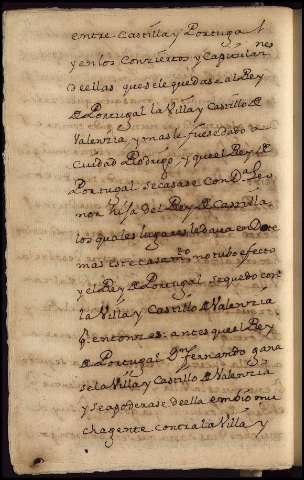 entre Castilla y Portugal
y en los Conziertos y Capitulaz.nes
de ellas que se le quedase al Rey
de Portugal la Villa y Castillo de
Valenzia y mas le fuese dado a
Ciudad Rodrigo y que el Rey de
Portugal se casase con Da. Leo
nor hija del Rey de Castilla
los quales lugares le dava en Dote
mas este casam.to no tubo efecto
y el Rey de Portugal se quedo con
la Villa y Castillo de Valenzia
q.e entonzes: antes que el Rey
de Portugal Dn. fernando gana
se la Villa y Castillo de Valenzia
y se apoderase de ella embio mu
cha gente contra la Villa y